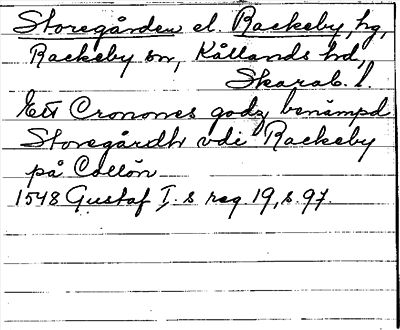 Storegården el. Rackeby, hg,
Rackeby sn, Kållands hd,
Skarab. l.
Ett Cronones godz benämpd
Storegårdh vdi Rackeby
på Collön
1548 Gustaf I.s reg. 19, s. 97.